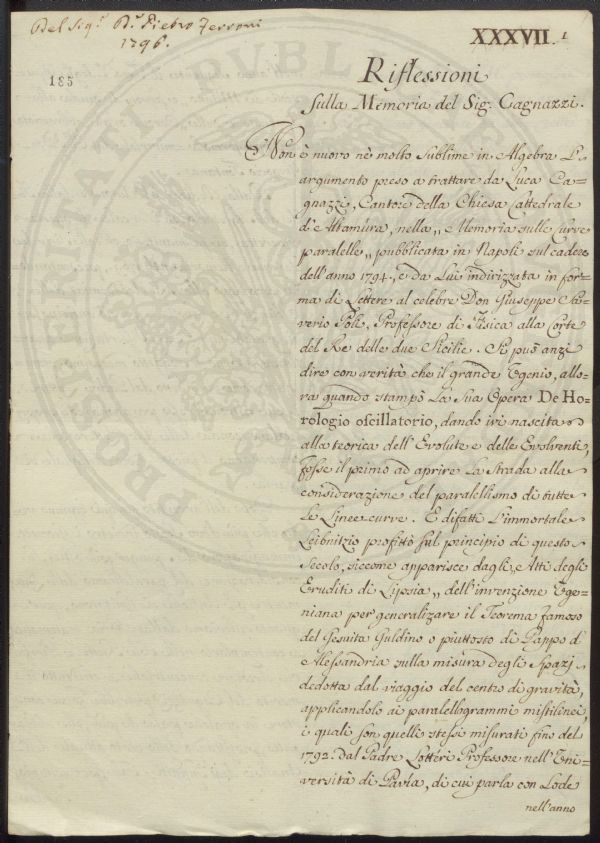 Del Sig.r D.r Pietro Ferroni
1796.
XXXVII. 1
185
Riflessioni
sulla Memoria del Sig. Cagnazzi.
Non è nuovo nè molto sublime in Algebra l'
argumento preso a trattare da Luca Ca=
gnazzi, Cantore della Chiesa Cattedrale
d'Altamura, nella „ Memoria sulle Curve
paralelle „ pubblicata in Napoli sul cadere
dell'anno 1794, e da Lui indirizzata in for=
ma di Lettere al celebre Don Giuseppe Sa=
verio Poli, Professore di Fisica alla Corte
del Re delle due Sicilie. Si può anzi
dire con verità che il grande Ugenio, allo=
ra quando stampò la Sua Opera De Ho=
rologio oscillatorio, dando ivi nascita
alla teorica dell'Evolute e delle Evolventi,
fosse il primo ad aprire la Strada alla
considerazione del paralellismo di tutte
le Linee curve. E difatti l'immortale
Leibnitzio profittò sul principio di questo
Secolo, siccome apparisce dagli „ Atti degli
Eruditi di Lipsia „ dell'invenzione Uge=
niana per generalizare il Teorema famoso
del Gesuita Guldino o piuttosto di Pappo d'
Alessandria sulla misura degli Spazj
dedotta dal viaggio del centro di gravità,
applicandolo ai paralellogrammi mistilinei,
i quali son quelli stessi misurati fino del
1792. dal Padre Lottéri Professore nell'Uni=
versità di Pavia, di cui parla con Lode
nell'anno
PROSPERITATI PUBLICAE